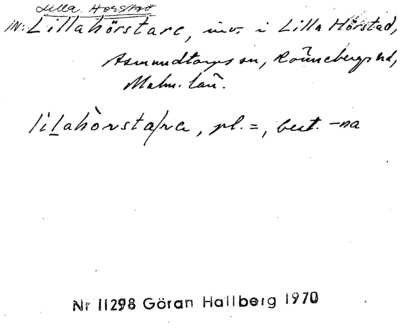 Lilla Horstad
in: Lillahörstare, inv. i Lilla Hörstad,
Asmundtorps sn, Rönnebergs hd,
Malm. län.
lilahòrsta/ra, pl. =, best. -na
Nr 11298 Göran Hallberg 1970